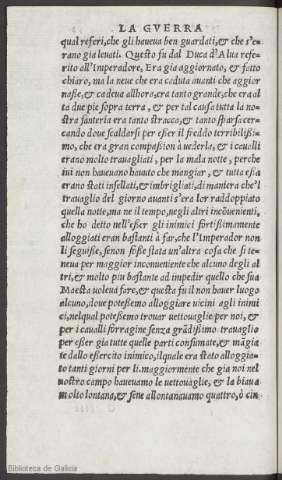 LA GVERRA
qual referi, che gli haueua ben guardati, & che s'e-
rano gia leuati. Questo fu dal Duca d'Alua refe-
rito all'Imperadore. Era gia aggiornato, & fatto
chiaro, ma la neue che era caduta auanti che aggior
nasse, & cadeua allhora, era tanto grande, che era al
ta due pie sopra terra, & per tal causa tutta la no-
stra fanteria era tanto stracca, & tanto sparsa cer-
cando doue scaldarsi per esser il freddo terribilissi-
mo, che era gran compassion à uederla, & i caualli
erano molto trauagliati, per la mala notte, perche
iui non haueuano hauuto che mangiar, & tutti essi
erano stati insellati, & imbrigliati, di maniera che'l
trauaglio del giorno auanti s'era lor raddoppiato
quella notte, ma ne il tempo, ne gli altri incōuenienti,
che ho detto nell'esser gli inimici fortissimamente
alloggiati eran bastanti à far, che l'Imperador non
li seguisse, se non fosse stata un'altra cosa che si te-
neua per maggior inconueniente che alcuno degli al
tri, & molto piu bastante ad impedir quello che sua
Maestà voleua fare, & questa fu il non hauer luogo
alcuno, doue potessemo alloggiare uicini agli inimi
ci, nel qual potessimo trouar uettouaglie per noi, &
per i caualli forragine senza grādissimo trauaglio
per esser gia tutte quelle parti consumate, & māgia
te dallo essercito inimico, il quale era stato alloggia-
to tanti giorni per lì. maggiormente che gia noi nel
nostro campo haueuamo le uettouaglie, & la biaua
molto lontana, & se ne allontanauamo quattro, ò cin
Biblioteca de Galicia